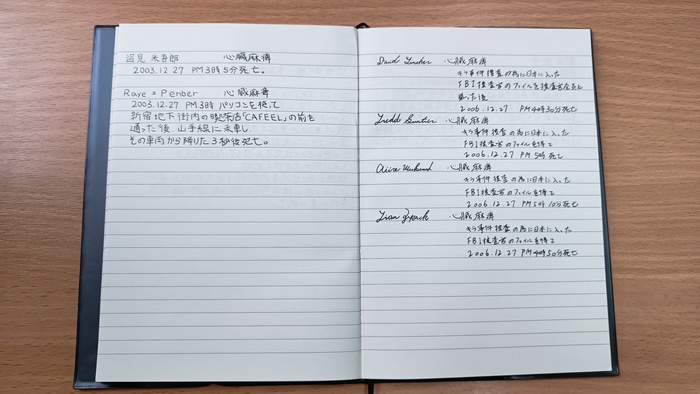 心臓麻痺
2003.12.27 PM3時5分死亡。
Raye = Penber 心臓麻痺
2003.12.27 PM3時 パソコンを捨て
新宿地下街内の喫茶店「CAFEEL」の前を
通った後、山手線に乗車し
その車両から降りた3秒後死亡。
心臓麻痺
キラ事件捜査の為に日本に入った
FBI捜査官のファイルを捜査官全員に
2006.12.27 PM4時30分死亡
心臓麻痺
キラ事件捜査の為に日本に入った
FBI捜査官のファイルを得て
2006.12.27 PM5時死亡
心臓麻痺
キラ事件捜査の為に日本に入った
FBI捜査官のファイルを得て
2006.12.27 PM5時10分死亡
心臓麻痺
キラ事件捜査の為に日本に入った
FBI捜査官のファイルを得て
2006.12.27 PM4時50分死亡